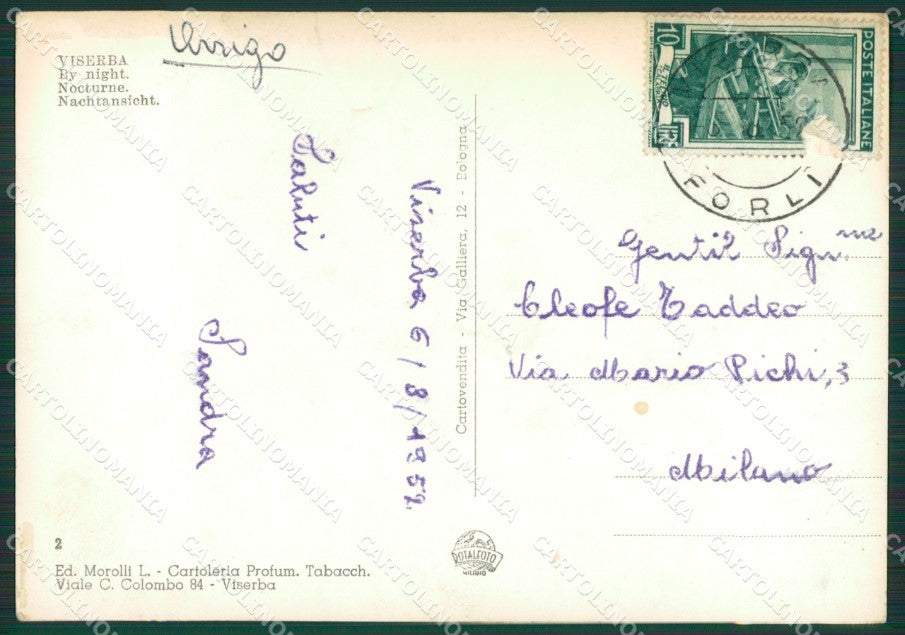 VISERBA
By night.
Nocturne.
Nachtansicht.
Arrigo
Saluti
Sandra
Viserba 6/8/1952
Cartovendita - Via Galliera, 12 - Bologna
10
POSTE ITALIANE
FORLI
Gentil Sign.na
Cleofe Taddeo
Via Mario Pichi, 3
Milano
2
Ed. Morolli L. - Cartoleria Profum. Tabacch.
Viale C. Colombo 84 - Viserba
ROTALFOTO
MILANO
CARTOLINOMANIA